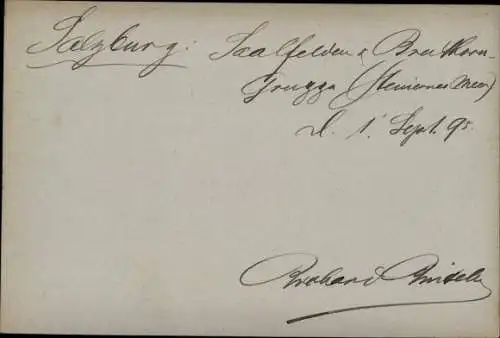 Salzburg: Saalfelden & Breithorn-
Gruppe (Steinernes Meer)
d. 1. Sept. 95.